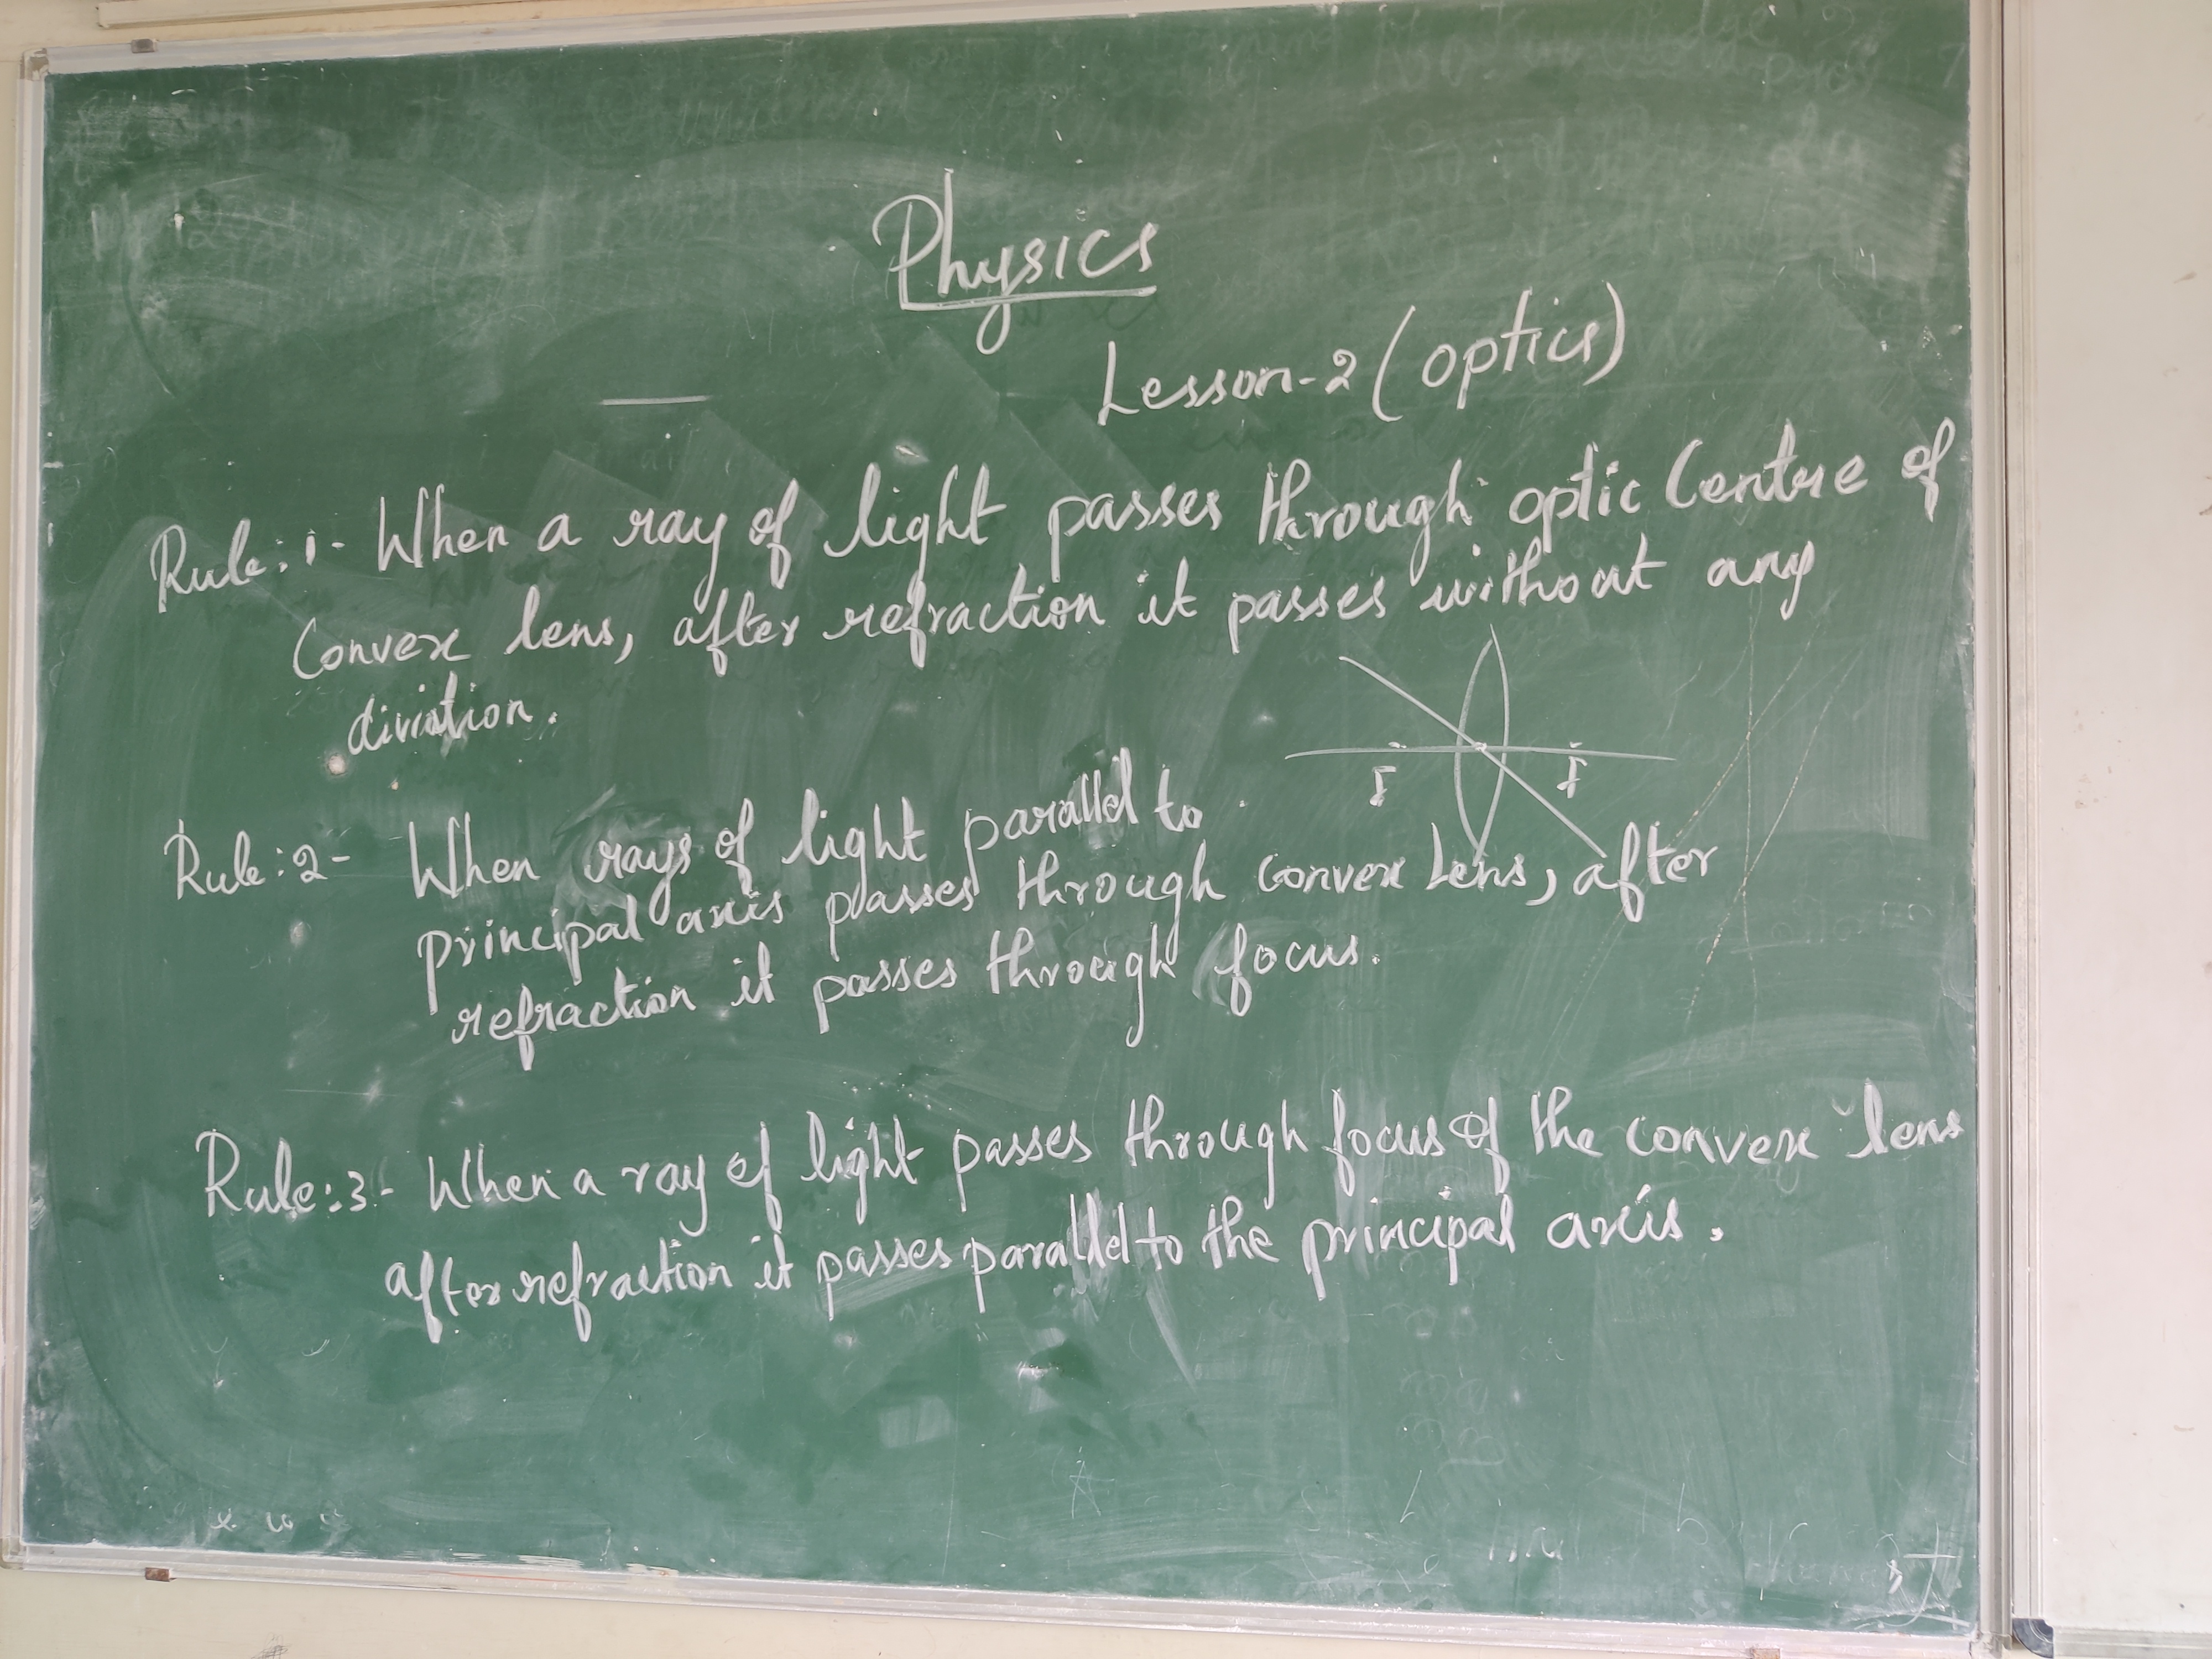 Physics
Lesson-2 (optics)
Rule:1- When a ray of light passes through optic Centre of
Convex lens, after refraction it passes without any
diviation.
F F
Rule:2- When rays of light parallel to
principal axis passes through convex Lens, after
refraction it passes through focus.
Rule:3- When a ray of light passes through focus of the convex lens
after refraction it passes parallel to the principal axis.